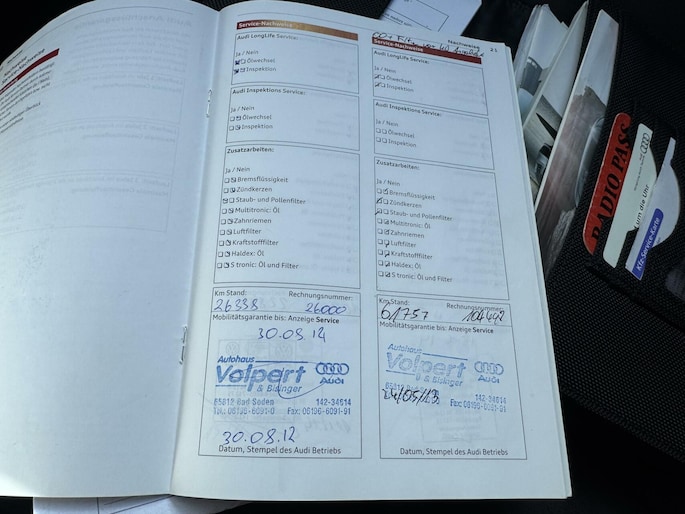 Service-Nachweise
Audi LongLife Service:
Ja / Nein
Ölwechsel
Inspektion
Audi Inspektions Service:
Ja / Nein
Ölwechsel
Inspektion
Zusatzarbeiten:
Ja / Nein
Bremsflüssigkeit
Zündkerzen
Staub- und Pollenfilter
Multitronic: Öl
Zahnriemen
Luftfilter
Kraftstofffilter
Haldex: Öl
S tronic: Öl und Filter
Km Stand: Rechnungsnummer:
26338 26000
Mobilitätsgarantie bis: Anzeige Service
30.08.14
Autohaus
Volpert
& Bisinger
Audi
65812 Bad Soden 142-34614
Tel.: 06196-6091-0 Fax: 06196-6091-91
30.08.12
Datum, Stempel des Audi Betriebs
Nachweise
21
Service-Nachweise
Audi LongLife Service:
Ja / Nein
Ölwechsel
Inspektion
Audi Inspektions Service:
Ja / Nein
Ölwechsel
Inspektion
Zusatzarbeiten:
Ja / Nein
Bremsflüssigkeit
Zündkerzen
Staub- und Pollenfilter
Multitronic: Öl
Zahnriemen
Luftfilter
Kraftstofffilter
Haldex: Öl
S tronic: Öl und Filter
Km Stand: Rechnungsnummer:
61757
Mobilitätsgarantie bis: Anzeige Service
Autohaus
Volpert
& Bisinger
Audi
65812 142-34614
Fax: 06196-6091-91
24/05/13
Datum, Stempel des Audi Betriebs
RADIO PASS
um die Uhr
Kfz-Service-Karte